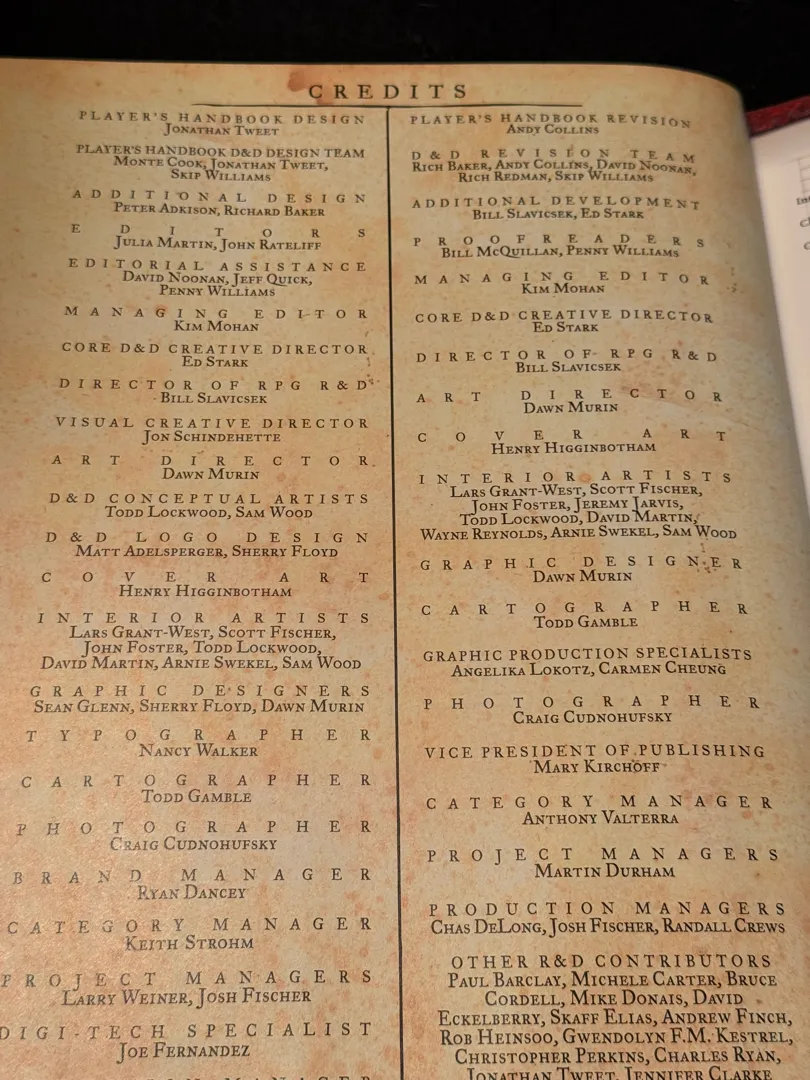 CREDITS
PLAYER'S HANDBOOK DESIGN
JONATHAN TWEET
PLAYER'S HANDBOOK D&D DESIGN TEAM
MONTE COOK, JONATHAN TWEET,
SKIP WILLIAMS
ADDITIONAL DESIGN
PETER ADKISON, RICHARD BAKER
EDITORS
JULIA MARTIN, JOHN RATELIFF
EDITORIAL ASSISTANCE
DAVID NOONAN, JEFF QUICK,
PENNY WILLIAMS
MANAGING EDITOR
KIM MOHAN
CORE D&D CREATIVE DIRECTOR
ED STARK
DIRECTOR OF RPG R&D
BILL SLAVICSEK
VISUAL CREATIVE DIRECTOR
JON SCHINDEHETTE
ART DIRECTOR
DAWN MURIN
D&D CONCEPTUAL ARTISTS
TODD LOCKWOOD, SAM WOOD
D&D LOGO DESIGN
MATT ADELSPERGER, SHERRY FLOYD
COVER ART
HENRY HIGGINBOTHAM
INTERIOR ARTISTS
LARS GRANT-WEST, SCOTT FISCHER,
JOHN FOSTER, TODD LOCKWOOD,
DAVID MARTIN, ARNIE SWEKEL, SAM WOOD
GRAPHIC DESIGNERS
SEAN GLENN, SHERRY FLOYD, DAWN MURIN
TYPOGRAPHER
NANCY WALKER
CARTOGRAPHER
TODD GAMBLE
PHOTOGRAPHER
CRAIG CUDNOHUFSKY
BRAND MANAGER
RYAN DANCEY
CATEGORY MANAGER
KEITH STROHM
PROJECT MANAGERS
LARRY WEINER, JOSH FISCHER
DIGI-TECH SPECIALIST
JOE FERNANDEZ
PLAYER'S HANDBOOK REVISION
ANDY COLLINS
D&D REVISION TEAM
RICH BAKER, ANDY COLLINS, DAVID NOONAN,
RICH REDMAN, SKIP WILLIAMS
ADDITIONAL DEVELOPMENT
BILL SLAVICSEK, ED STARK
PROOFREADERS
BILL MCQUILLAN, PENNY WILLIAMS
MANAGING EDITOR
KIM MOHAN
CORE D&D CREATIVE DIRECTOR
ED STARK
DIRECTOR OF RPG R&D
BILL SLAVICSEK
ART DIRECTOR
DAWN MURIN
COVER ART
HENRY HIGGINBOTHAM
INTERIOR ARTISTS
LARS GRANT-WEST, SCOTT FISCHER,
JOHN FOSTER, JEREMY JARVIS,
TODD LOCKWOOD, DAVID MARTIN,
WAYNE REYNOLDS, ARNIE SWEKEL, SAM WOOD
GRAPHIC DESIGNER
DAWN MURIN
CARTOGRAPHER
TODD GAMBLE
GRAPHIC PRODUCTION SPECIALISTS
ANGELIKA LOKOTZ, CARMEN CHEUNG
PHOTOGRAPHER
CRAIG CUDNOHUFSKY
VICE PRESIDENT OF PUBLISHING
MARY KIRCHOFF
CATEGORY MANAGER
ANTHONY VALTERRA
PROJECT MANAGERS
MARTIN DURHAM
PRODUCTION MANAGERS
CHAS DELONG, JOSH FISCHER, RANDALL CREWS
OTHER R&D CONTRIBUTORS
PAUL BARCLAY, MICHELE CARTER, BRUCE
CORDELL, MIKE DONAIS, DAVID
ECKELBERRY, SKAFF ELIAS, ANDREW FINCH,
ROB HEINSOO, GWENDOLYN F.M. KESTREL,
CHRISTOPHER PERKINS, CHARLES RYAN,
JONATHAN TWEET, JENNIFER CLARKE